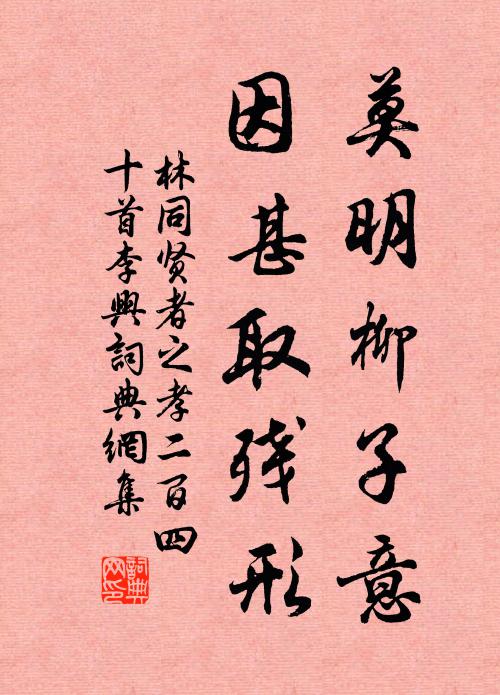 莫明柳子意
因甚取残形
林同贤者之孝二百四
十首李興詞典網集
詞典
网印